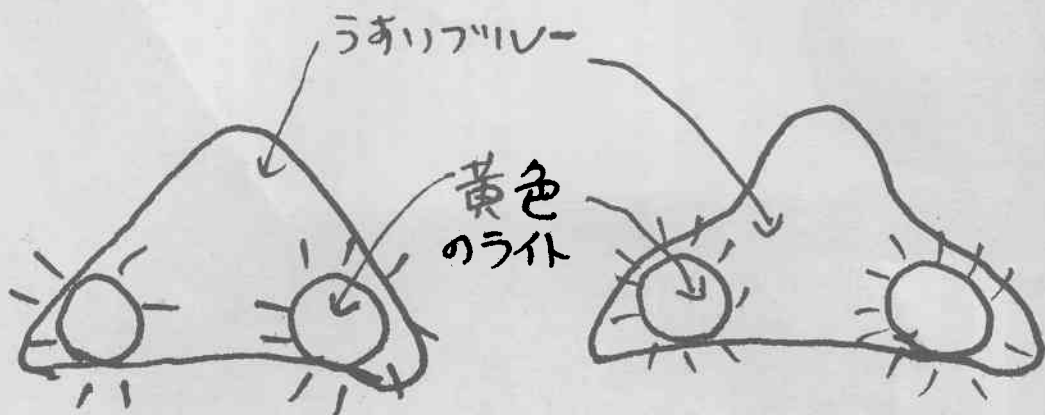 うすいブルー
黄色
のライト